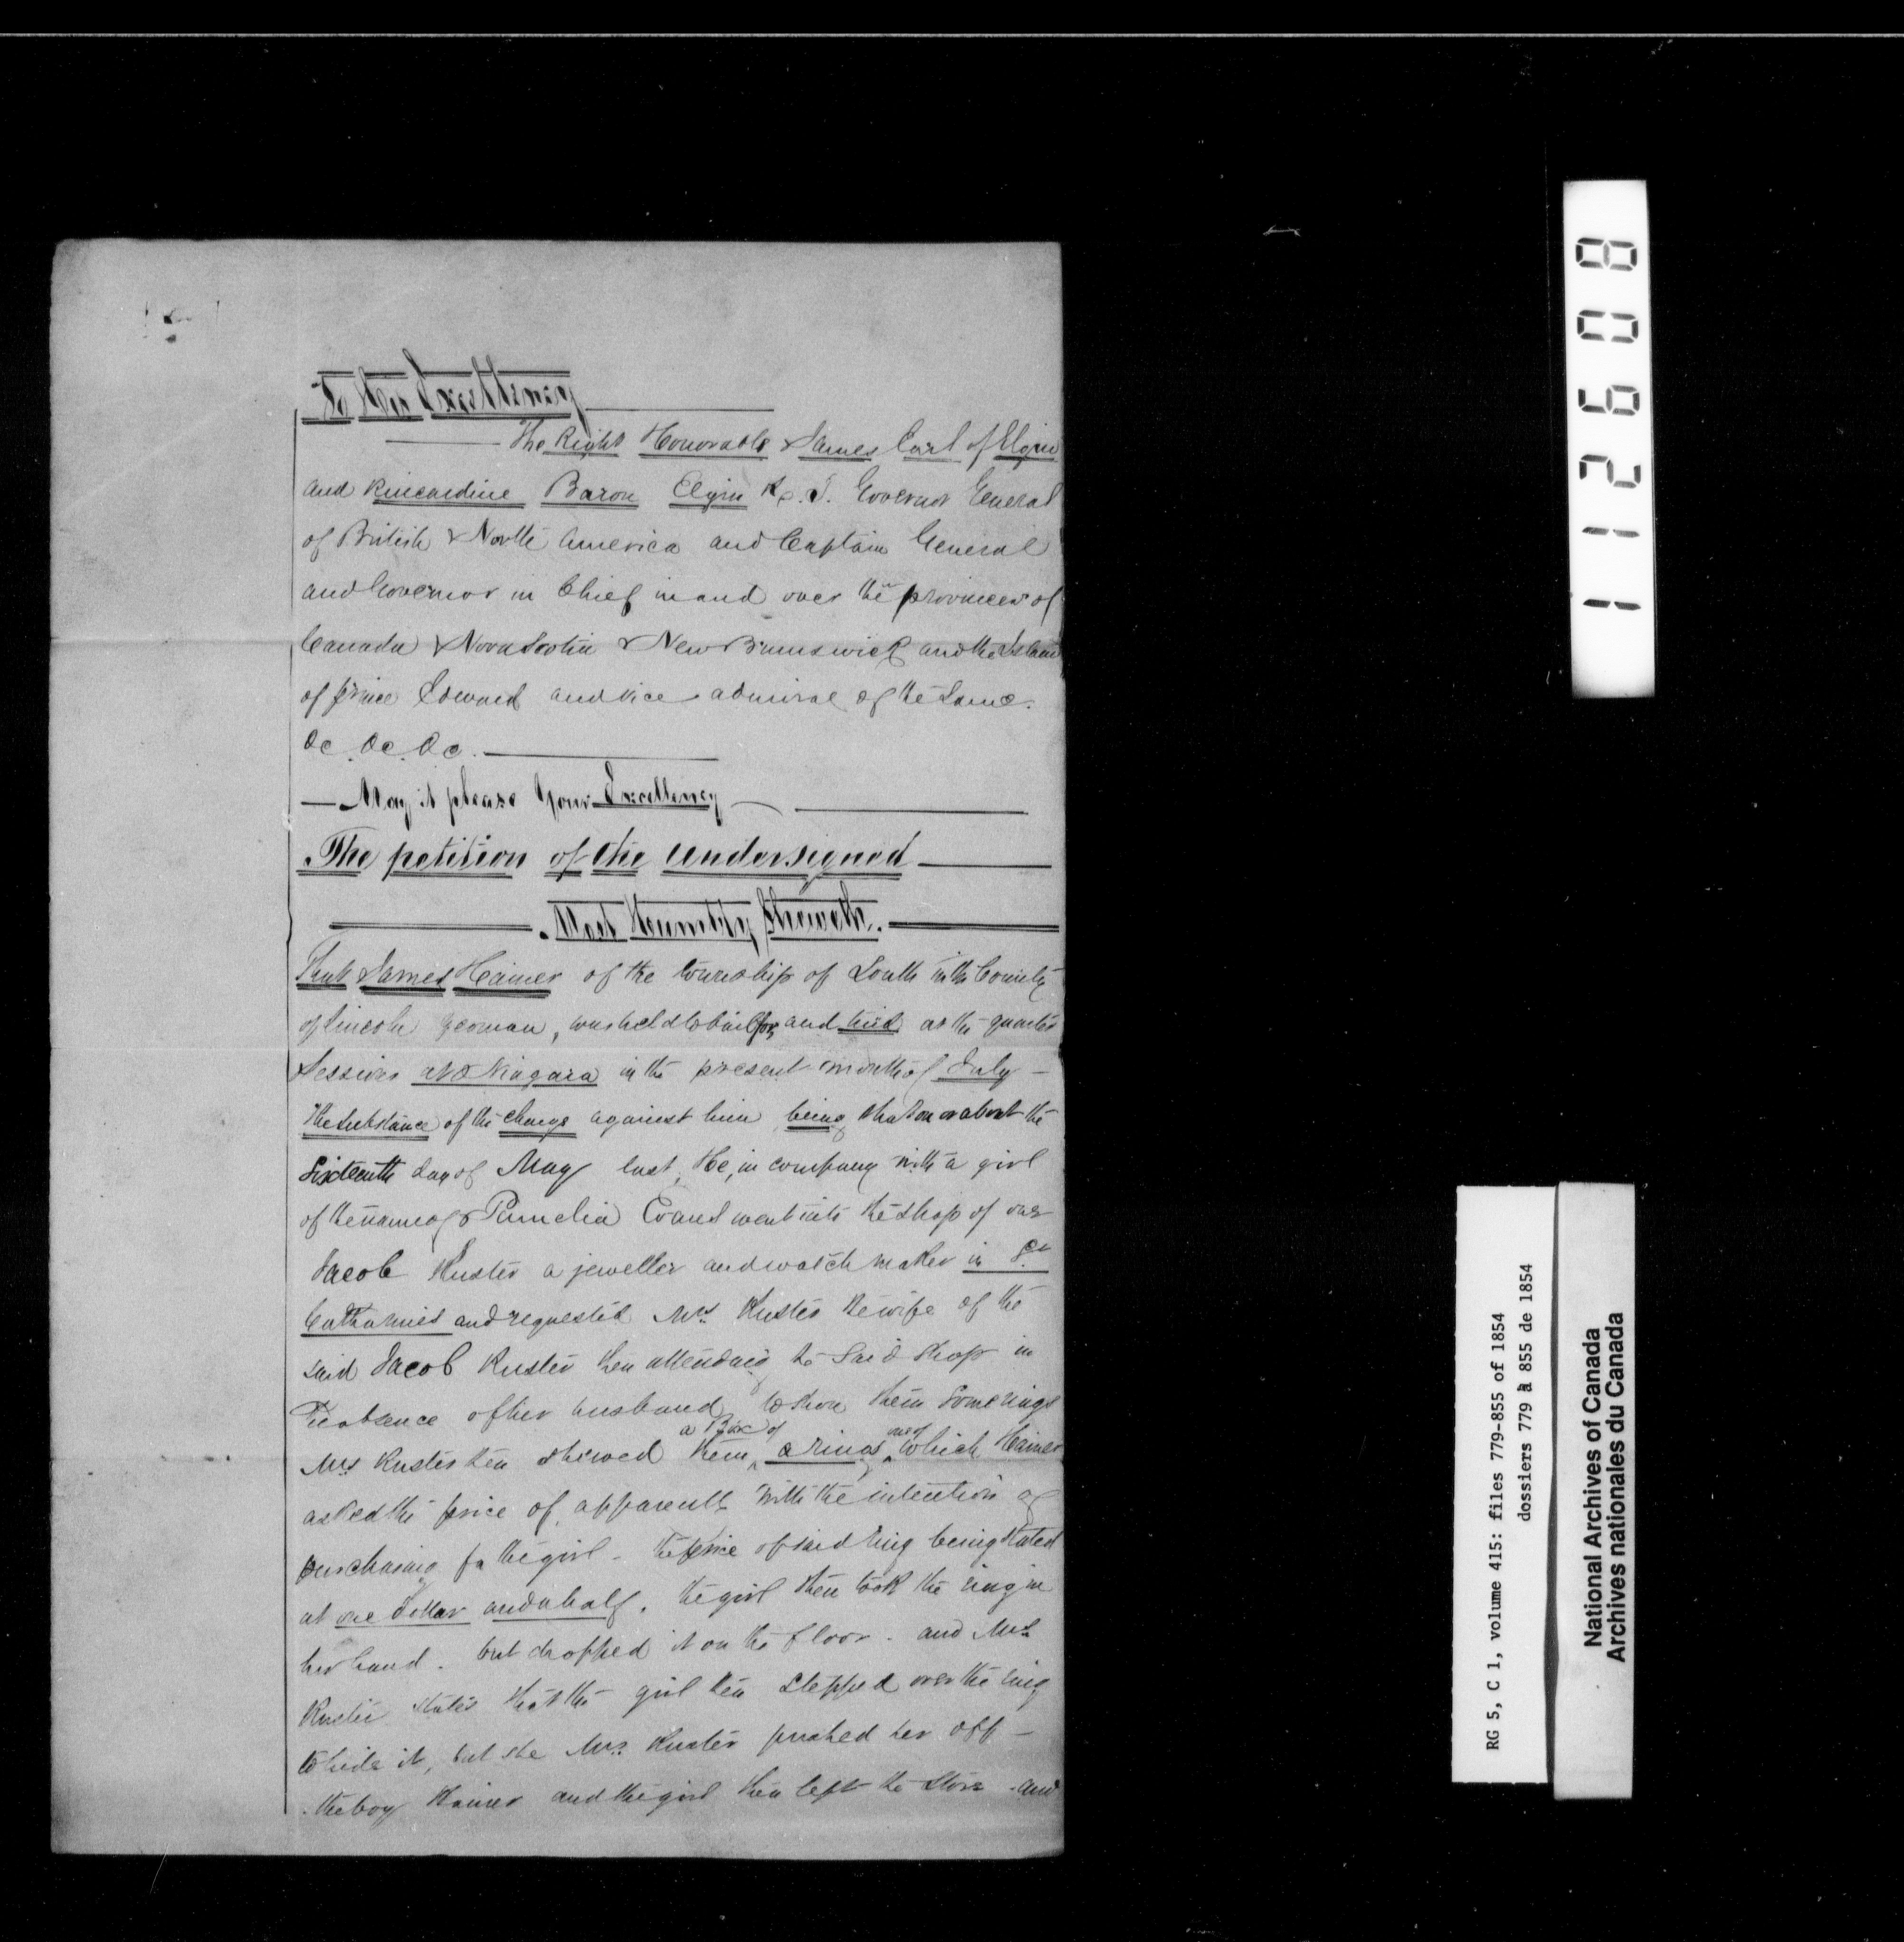 To His Excellency
The Right Honorable James Earl of Elgin
and Kincardine Baron Elgin K. T. Governor General
of British North America and Captain General
and Governor in Chief in and over the provinces of
Canada Nova Scotia New Brunswick and the Island
of prince Edward and vice admiral of the same.
&c. &c. &c.
May it please Your Excellency
The petition of the undersigned
Most Humbly Sheweth.
That James Hainer of the township of Louth in the County
of Lincoln yeoman, was held to bail for, and tried at the quarter
Sessions at Niagara in the present month of July
the substance of the charge against him being that on or about the
Sixteenth day of May last, He, in company with a girl
of the name of Pamelia Evans went into the shop of one
Jacob Kuster a jeweller and watch maker in St.
Catharines and requested Mrs. Kuster the wife of the
said Jacob Kuster then attending to said shop in
the absence of her husband to show them some rings
Mrs Kuster then shewed them a Box of rings one of which Hainer
asked the price of, apparently with the intention of
purchasing for the girl - the price of said ring being stated
at one dollar and a half. the girl then took the ring in
her hand. but dropped it on the floor - and Mrs.
Kuster states that the girl then stepped over the ring
to hide it, but she Mrs. Kuster pushed her off -
the boy Hainer and the girl then left the store - and
112608
RG 5, C 1, volume 415: files 779-855 of 1854
dossiers 779 à 855 de 1854
National Archives of Canada
Archives nationales du Canada